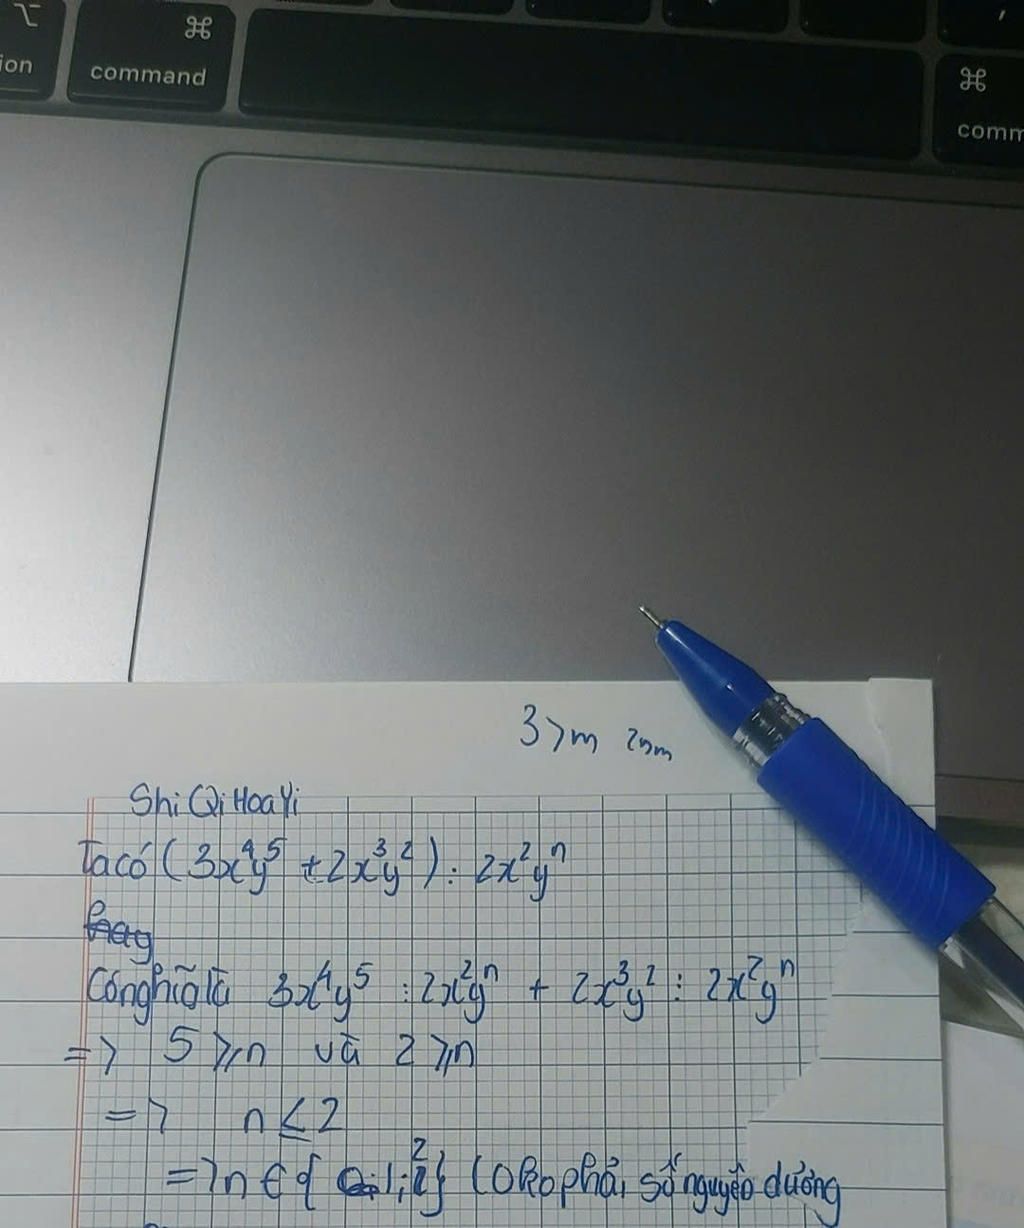 ⌥ ⌘ ⌘
ion command comm
3 > m
Shi Qi Hoa Yi
Ta có (3x⁴y⁵ + 2x³y²) : 2x²yⁿ
Có nghĩa là 3x⁴y⁵ ⋮ 2x²yⁿ + 2x³y² ⋮ 2x²yⁿ
=> 5 ⩾ n và 2 ⩾ n
=> n ≤ 2
=> n ∈ {1; 2} (0 ko phải số nguyên dương